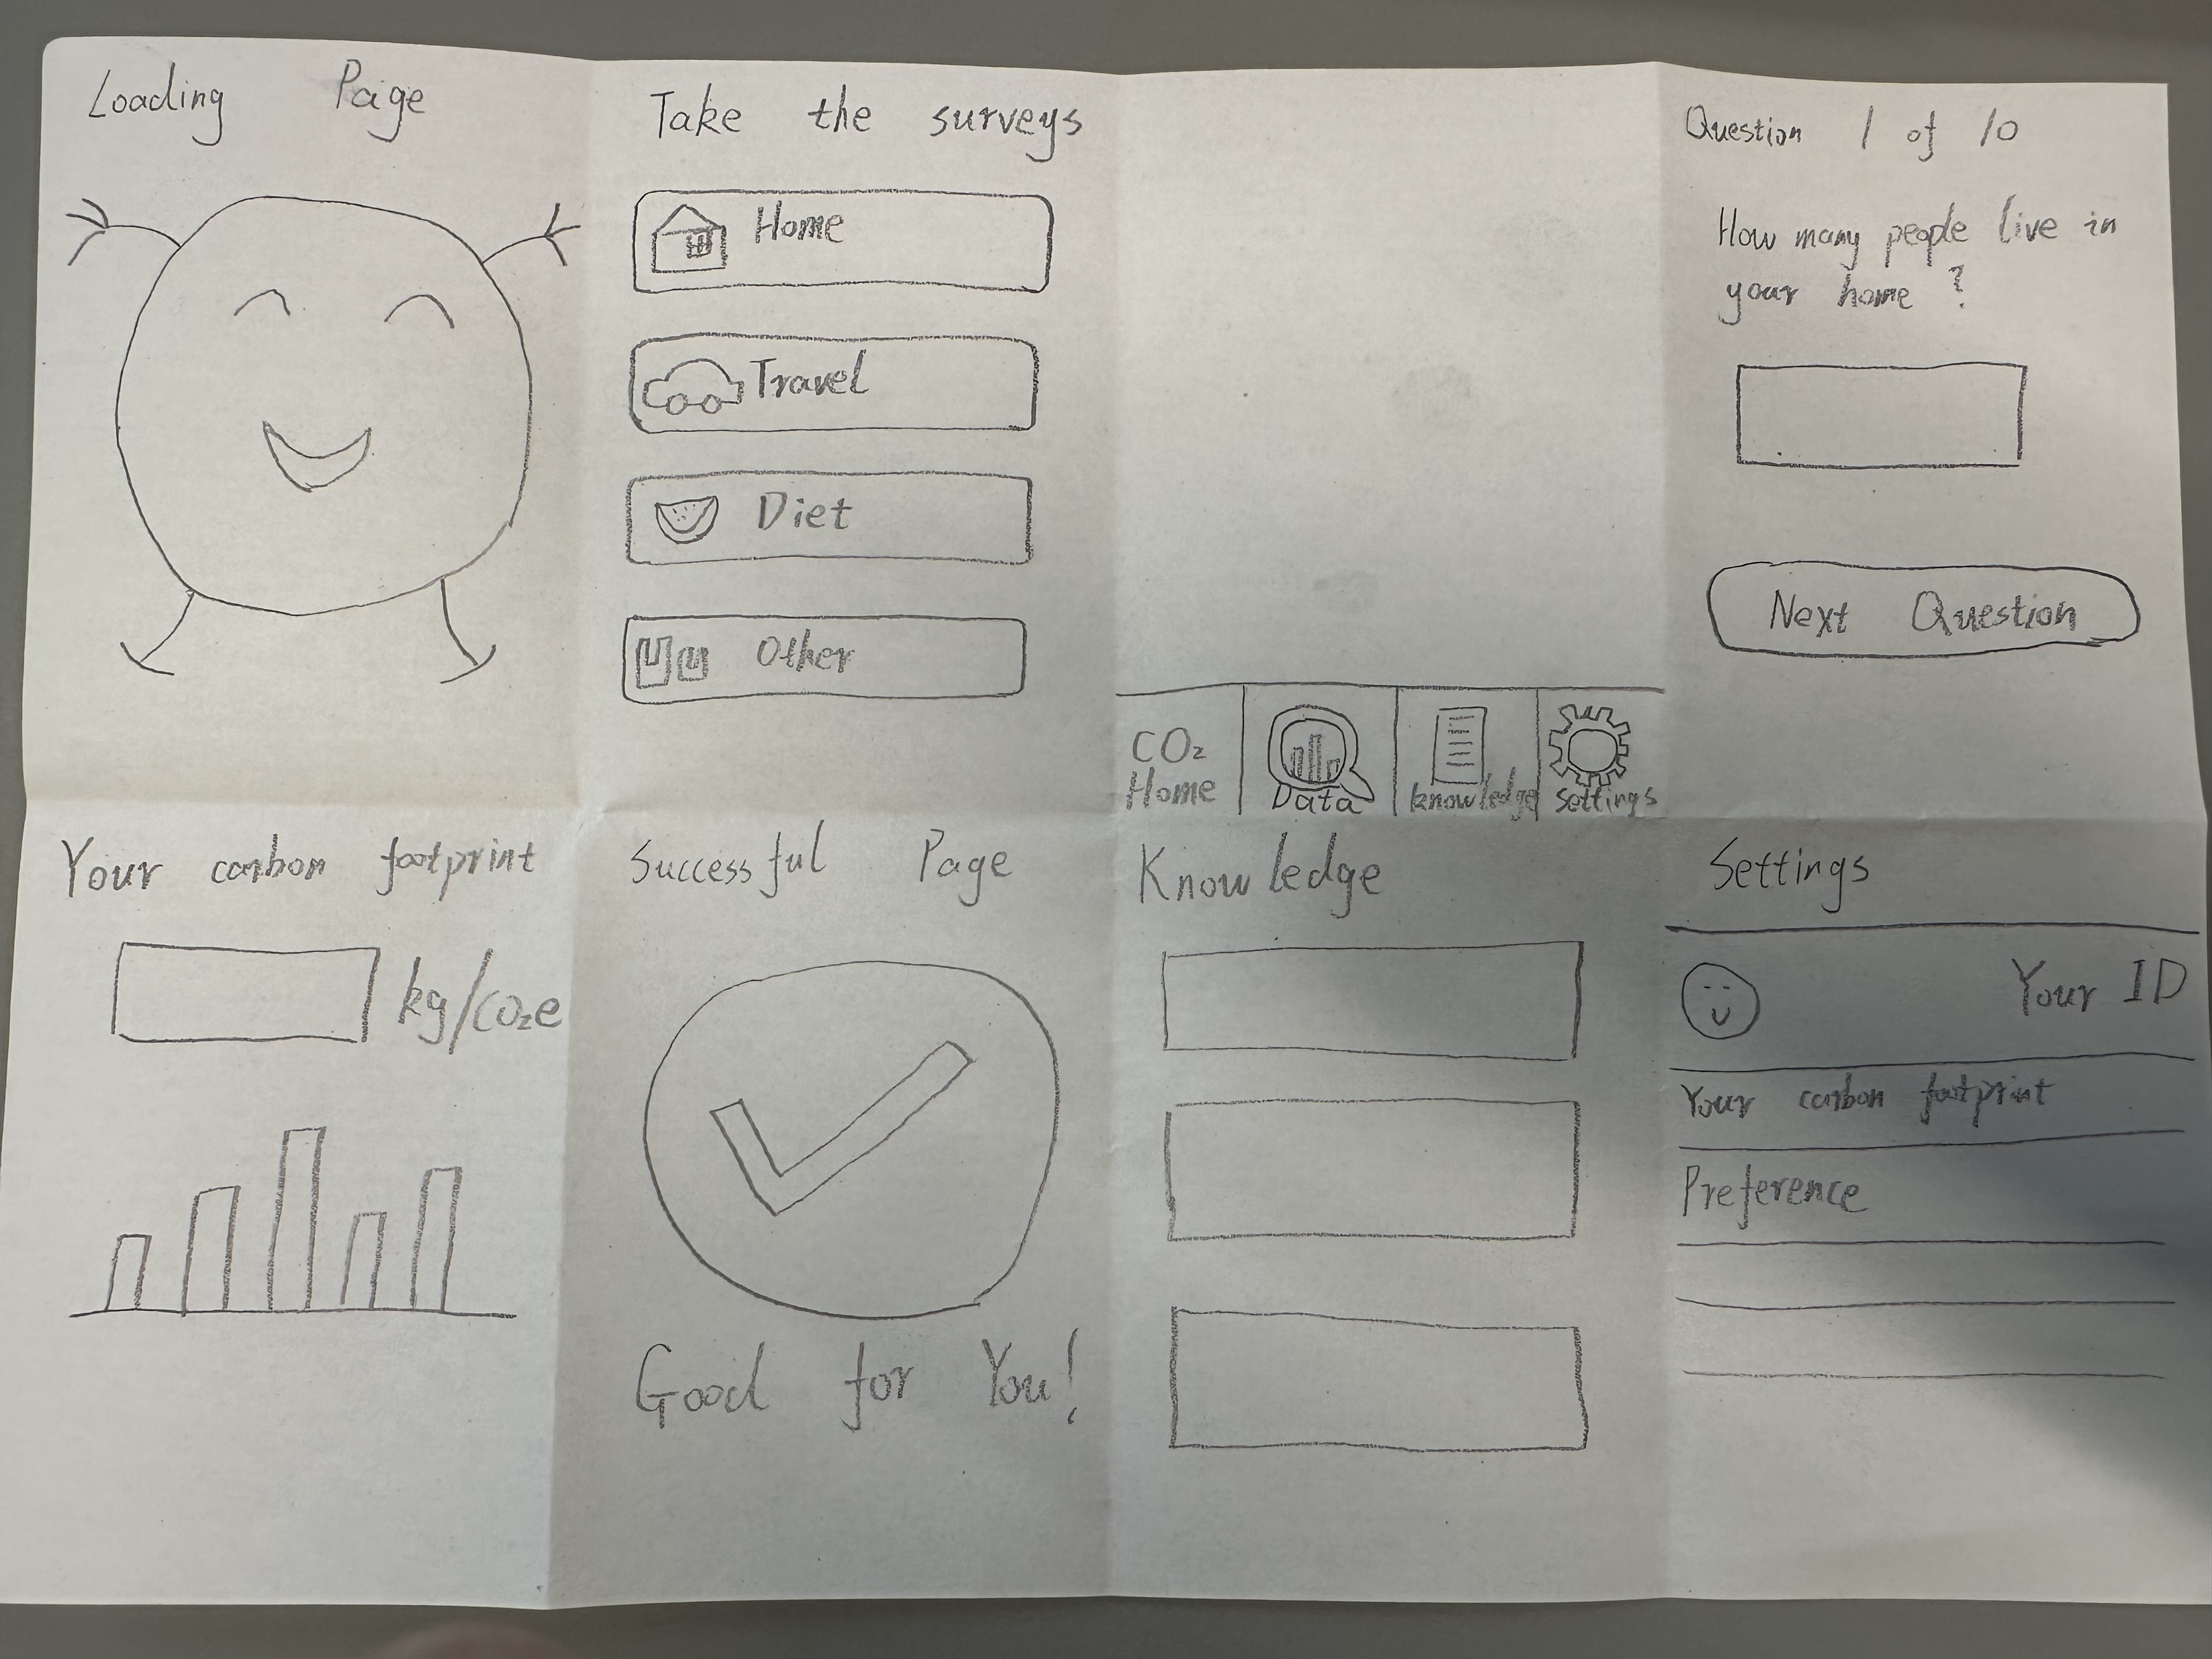 Loading Page
Take the surveys
Home
Travel
Diet
Other
CO₂
Home
Data
knowledge
settings
Question 1 of 10
How many people live in
your home ?
Next Question
Your carbon footprint
kg/CO₂e
Successful Page
Good for You!
Knowledge
Settings
Your ID
Your carbon footprint
Preference